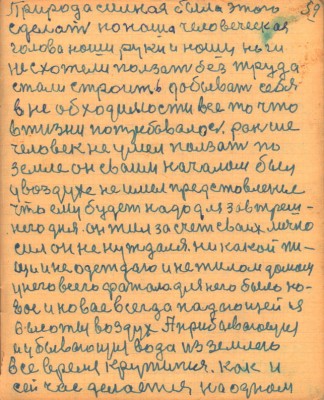 59
Природа силная была этого
сделат но наша человеческая
голова наши руки и нашу ноги
не схотели ползат без труда
стали строить добыват себя
в не обходимости все то что
в жизни потребовалос. раньше
человек не умел ползат по
земле он своим началом был
у воздухе не имел представление
что ему будет надо для завтреш-
него дня. он жил за счет своих лично
сил он не нуждался. ни какой пи-
щи и не одеждаю и не жилом домам
у него всего фатала для него было но-
вое и новае всегда падающей ся
высоты воздух А прибывающия
и убывающия вода из землею
все время крутится. как и
сей час делается на одном